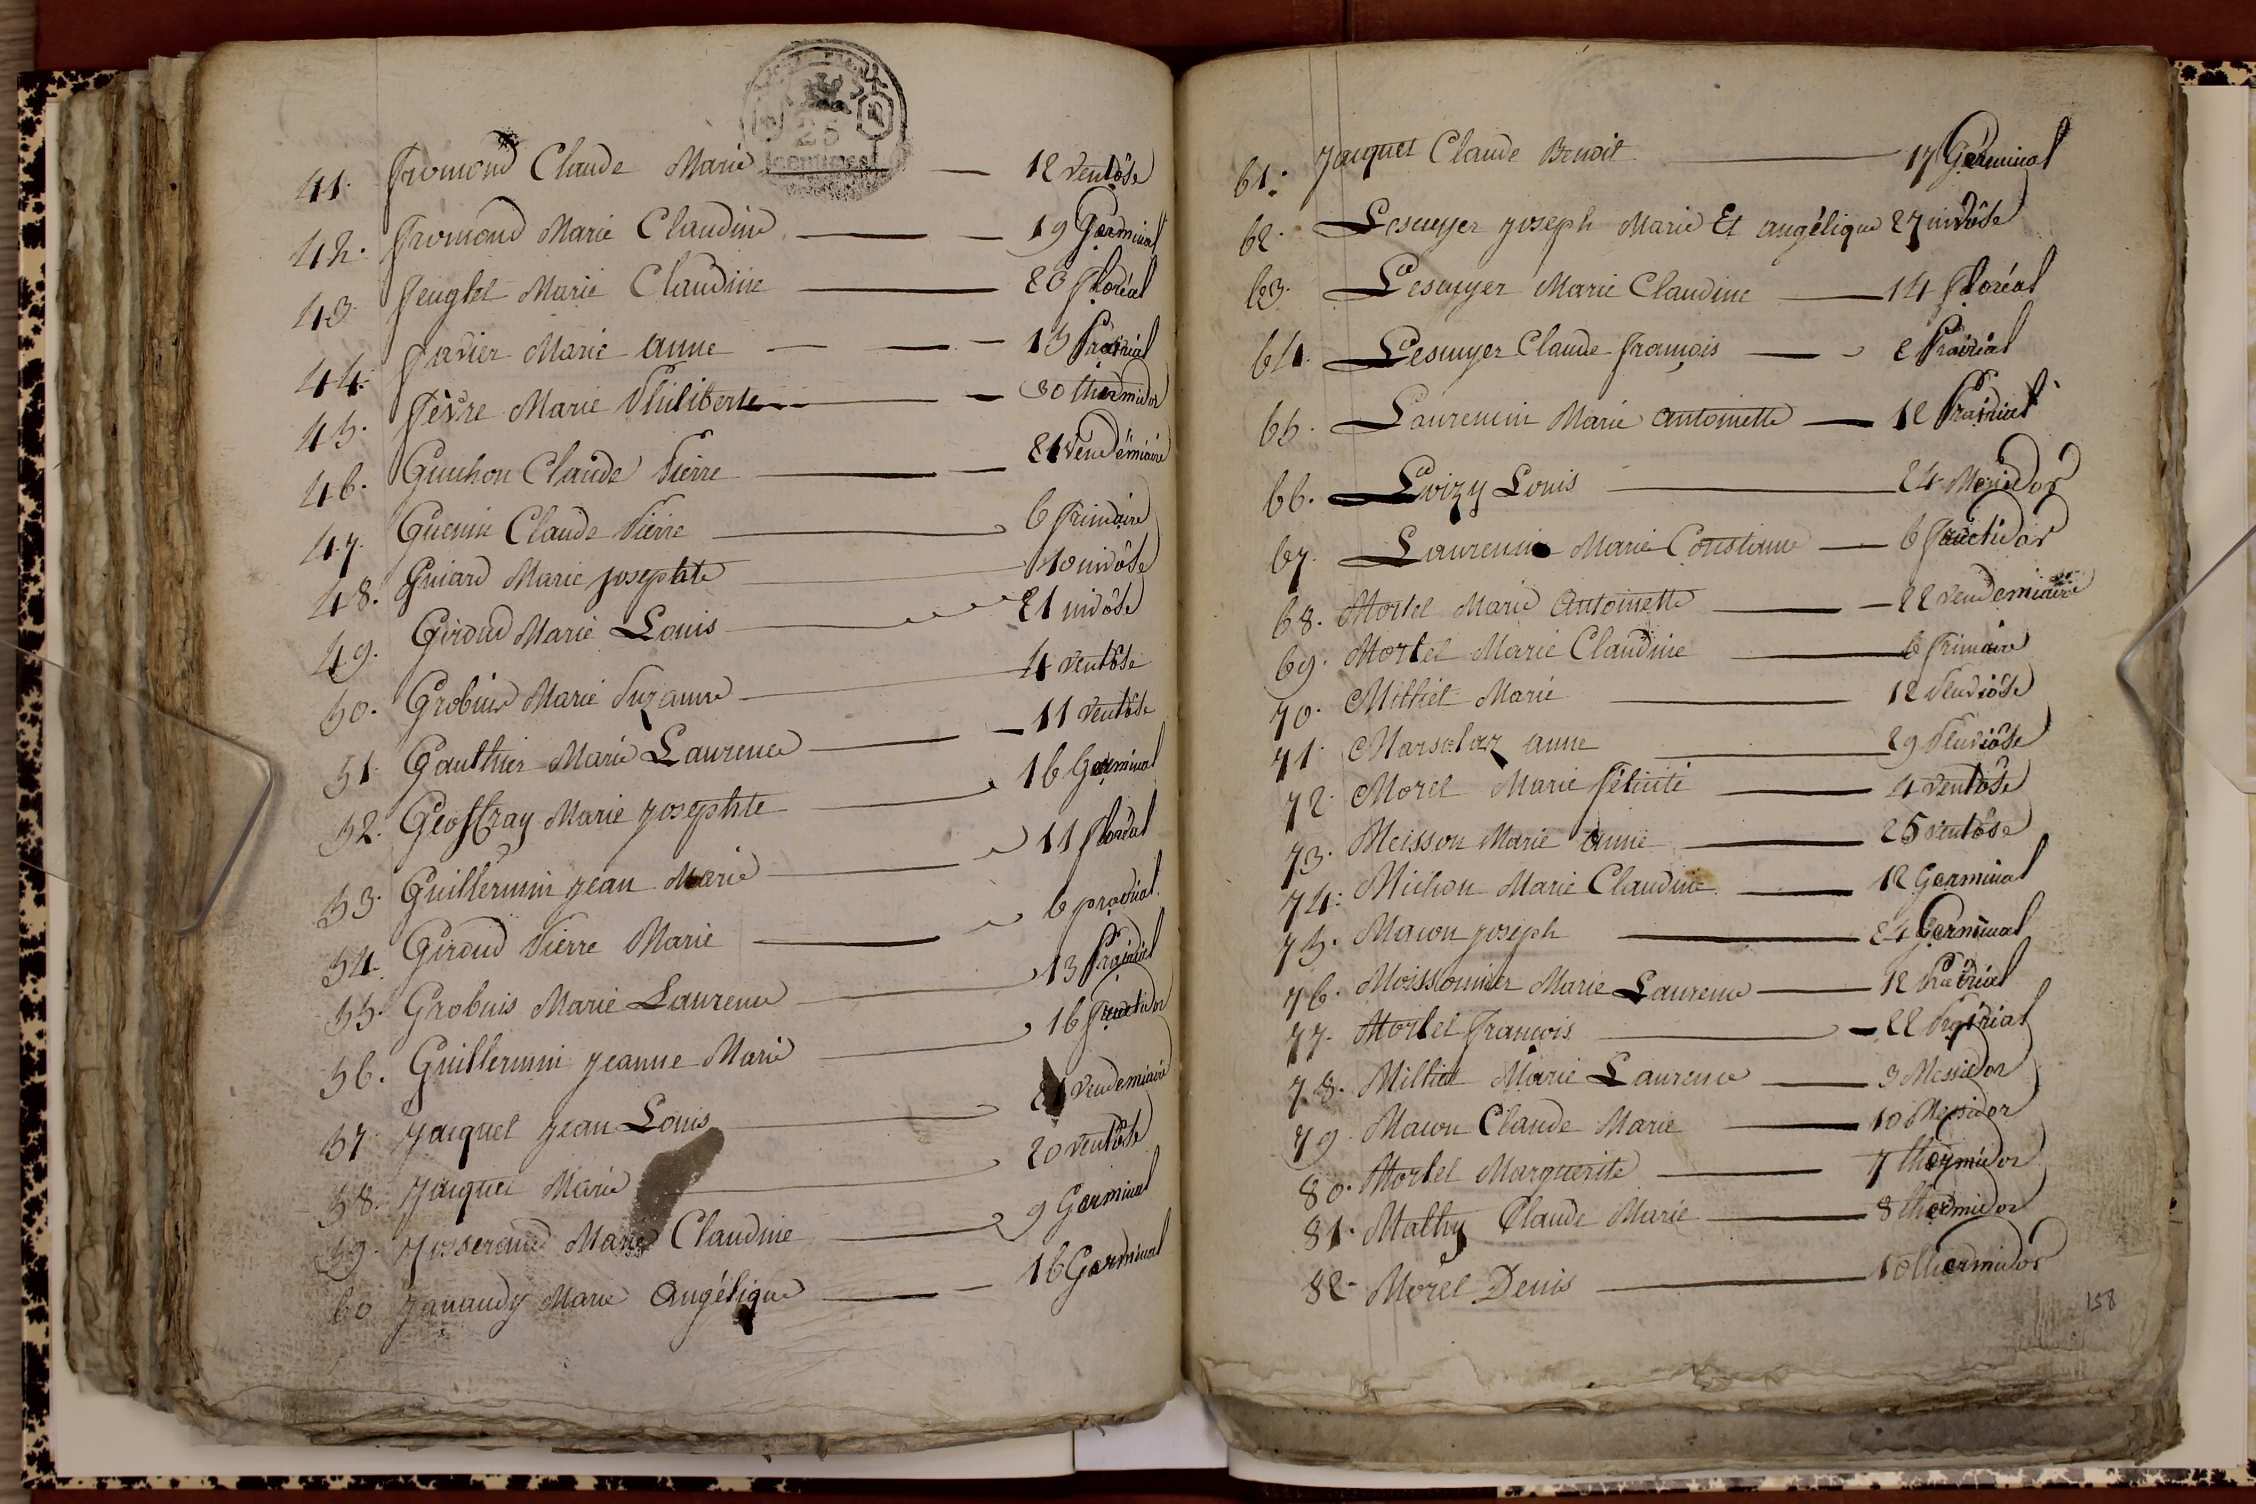 25
centimes
41. Fromond Claude Marie 12 ventôse
42. Fromond Marie Claudine 19 Germinal
43. Feuglet Marie Claudine 20 floréal
44. favier Marie anne 15 Prairial
45. fèvre Marie Philiberte 30 thermidor
46. Guichon Claude Pierre 21 Vendémiaire
47. Guenin Claude Pierre 6 frimaire
48. Guiard Marie josephte 10 nivôse
49. Giroud Marie Louis 21 nivôse
50. Grobuis Marie Suzanne 4 ventôse
51. Gauthier Marie Laurence 11 ventôse
52. Geoffray Marie josephte 16 Germinal
53. Guillermin jean Marie 11 floréal
54. Giroud Pierre Marie 6 prairial
55. Grobuis Marie Laurence 13 Prairial
56. Guillermin jeanne Marie 16 fructidor
57. jacquet jean Louis 21 vendemiaire
58. jacquet Marie 20 ventôse
59. josserand Marie Claudine 9 Germinal
60 janaudy Marie Angélique 16 Germinal
61. jacquet Claude Benoit 17 Germinal
62. Lescuyer joseph Marie Et angélique 27 nivôse
63. Lescuyer Marie Claudine 14 floréal
64. Lescuyer Claude françois 2 Prairial
65. Laurencin Marie antoinette 12 Prairial
66. Loizy Louis 24 Messidor
67. Laurencin Marie Constance 6 fructidor
68. Mortel Marie Antoinette 22 vendemiaire
69. Mortel Marie Claudine 6 frimaire
70. Milliet Marie 12 Pluviôse
71. anne 29 Pluviôse
72. Morel Marie félicité 4 ventôse
73. Meisson Marie Anne 25 ventôse
74. Michon Marie Claudine 12 Germinal
75. Macon joseph 24 Germinal
76. Moissonnier Marie Laurence 12 Prairial
77. Mortel françois 22 Prairial
78. Milliet Marie Laurence 3 Messidor
79. Macon Claude Marie 10 Messidor
80. Mortel Marguerite 7 thermidor
81. Mathy Claude Marie 8 thermidor
82. Morel Denis 10 thermidor
158